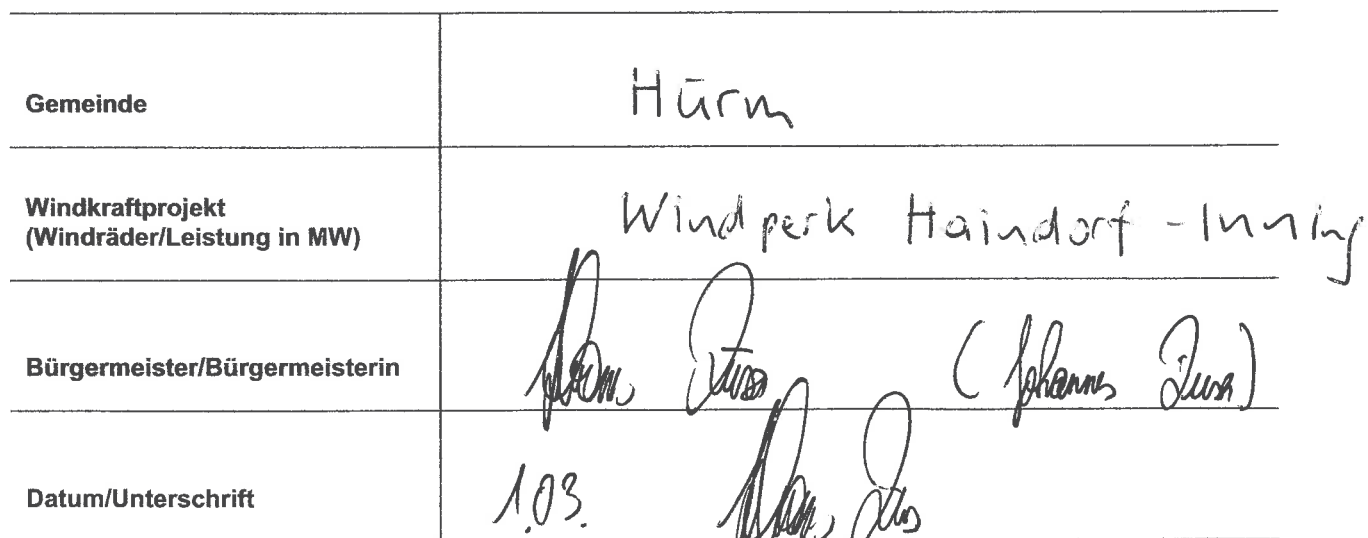 Gemeinde
Hürm
Windkraftprojekt
(Windräder/Leistung in MW)
Windpark Haindorf - Inning
Bürgermeister/Bürgermeisterin
(Johannes
Datum/Unterschrift
1.03.